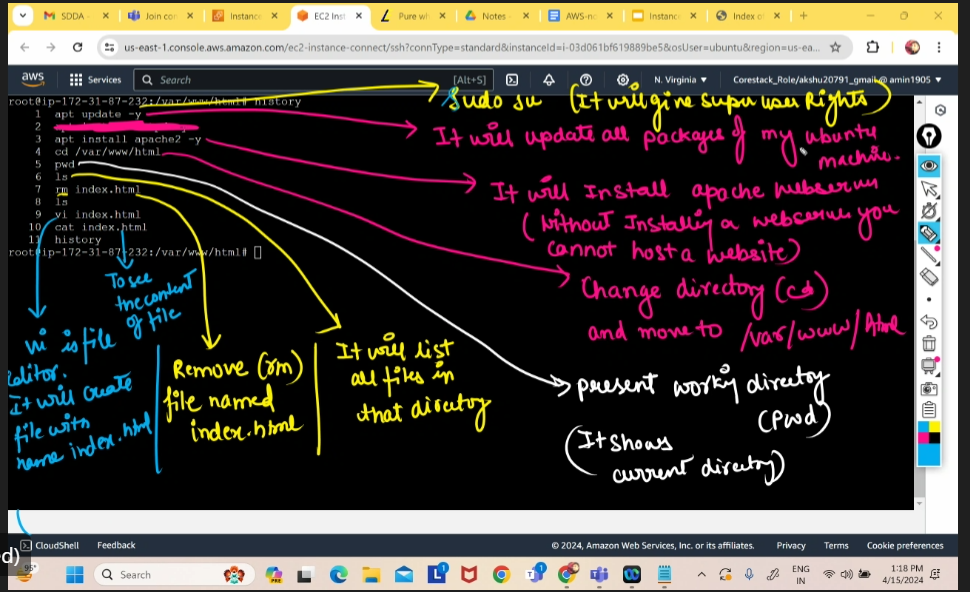 SDDA -
Join con
Instanc
EC2 Inst
Pure wh
Notes -
AWS-n
Instanc
Index o
us-east-1.console.aws.amazon.com/ec2-instance-connect/ssh?connType=standard&instanceId=i-03d061bf619889be5&osUser=ubuntu&region=us-ea...
aws
Services
Search
[Alt+S]
N. Virginia
Corestack_Role/akshu20791_gmail@amin1905
root@ip-172-31-87-232:/var/www/html# history
1 apt update -y
2
3 apt install apache2 -y
4 cd /var/www/html
5 pwd
6 ls
7 rm index.html
8 ls
9 vi index.html
10 cat index.html
11 history
root@ip-172-31-87-232:/var/www/html#
Sudo su (It will give super user Rights)
It will update all packages of my ubuntu
machine.
It will Install apache webserver
(Without Installing a webserver you
cannot host a website)
Change directory (cd)
and move to /var/www/html
present working directory
(Pwd)
(It shows
current directory)
To see
the content
of file
vi is file
editor.
It will create
file with
name index.html
Remove (rm)
file named
index.html
It will list
all files in
that directory
CloudShell
Feedback
© 2024, Amazon Web Services, Inc. or its affiliates.
Privacy
Terms
Cookie preferences
d)
95°
Search
ENG
IN
1:18 PM
4/15/2024